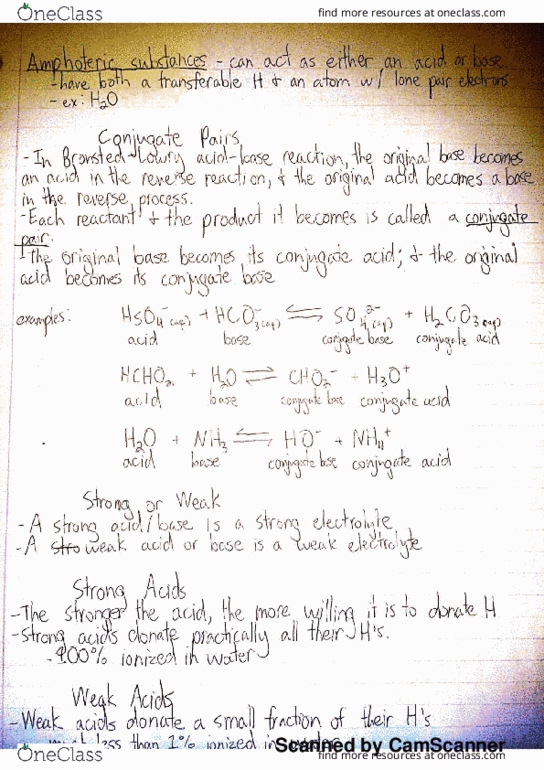 OneClass find more resources at oneclass.com
Amphoteric substances - can act as either an acid or base
- have both a transferable H & an atom w/ lone pair electrons
- ex: H₂O
Conjugate Pairs
- In Bronsted-Lowry acid-base reaction, the original base becomes
an acid in the reverse reaction, & the original acid becomes a base
in the reverse process.
- Each reactant & the product it becomes is called a conjugate
pair.
- The original base becomes its conjugate acid; & the original
acid becomes its conjugate base
examples: HSO₄⁻(aq) + HCO₃⁻(aq) ⇌ SO₄²⁻(aq) + H₂CO₃(aq)
acid base conjgate base conjugate acid
HCHO₂ + H₂O ⇌ CHO₂⁻ + H₃O⁺
acid base conjugate base conjugate acid
H₂O + NH₃ ⇌ HO⁻ + NH₄⁺
acid base conjugate base conjugate acid
Strong or Weak
- A strong acid/base is a strong electrolyte
- A weak acid or base is a weak electrolyte
Strong Acids
- The stronger the acid, the more willing it is to donate H
- Strong acids donate practically all their H's.
- 100% ionized in water
Weak Acids
- Weak acids donate a small fraction of their H's
less than 1% ionized in water
Scanned by CamScanner
OneClass find more resources at oneclass.com